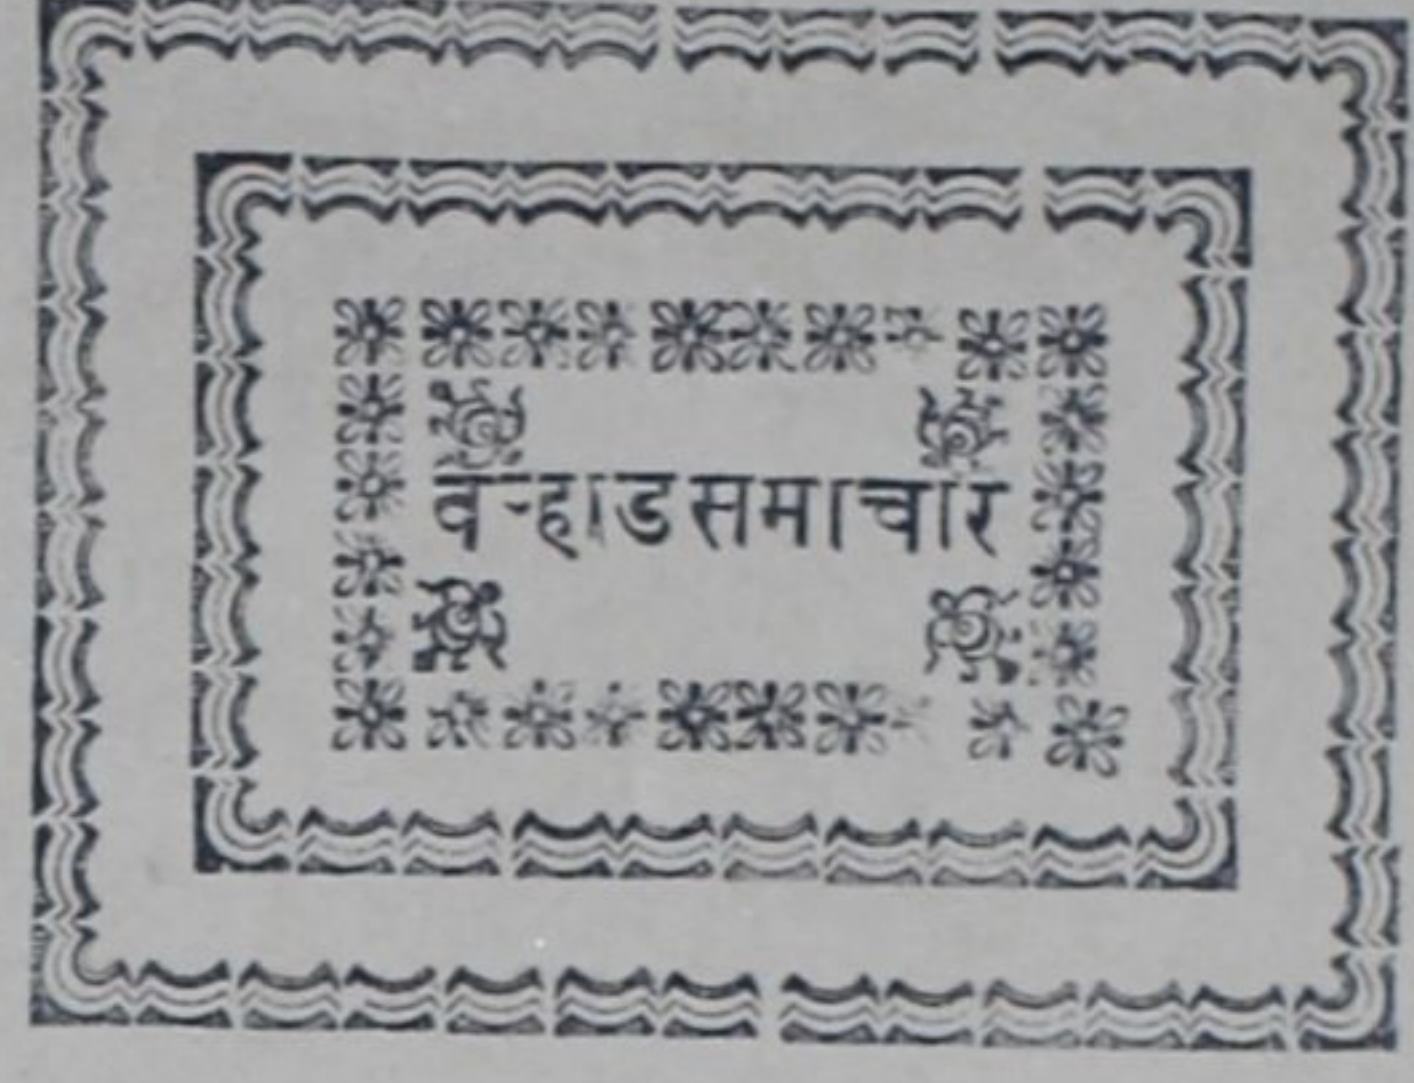 वऱ्हाड समाचार